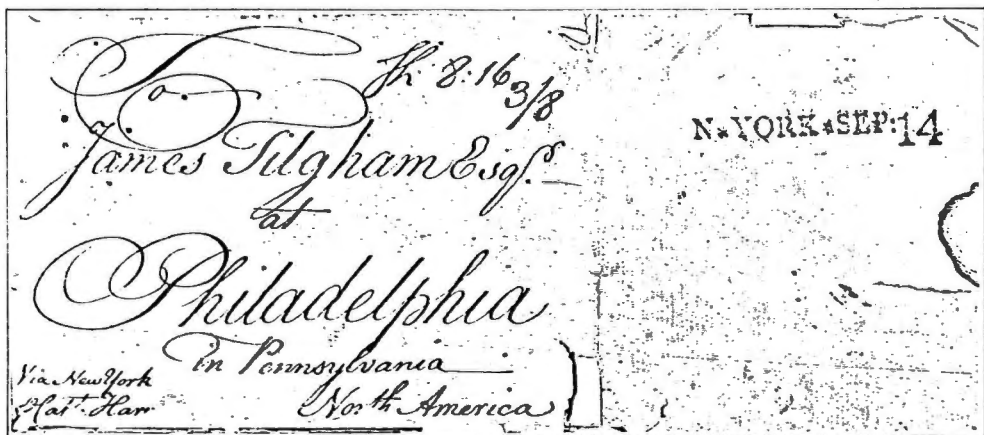 To
Sh 8:16 3/8
James Tilgham Esqr.
at
Philadelphia
in Pennsylvania
North America
Via New York
Harr
N*YORK*SEP:14